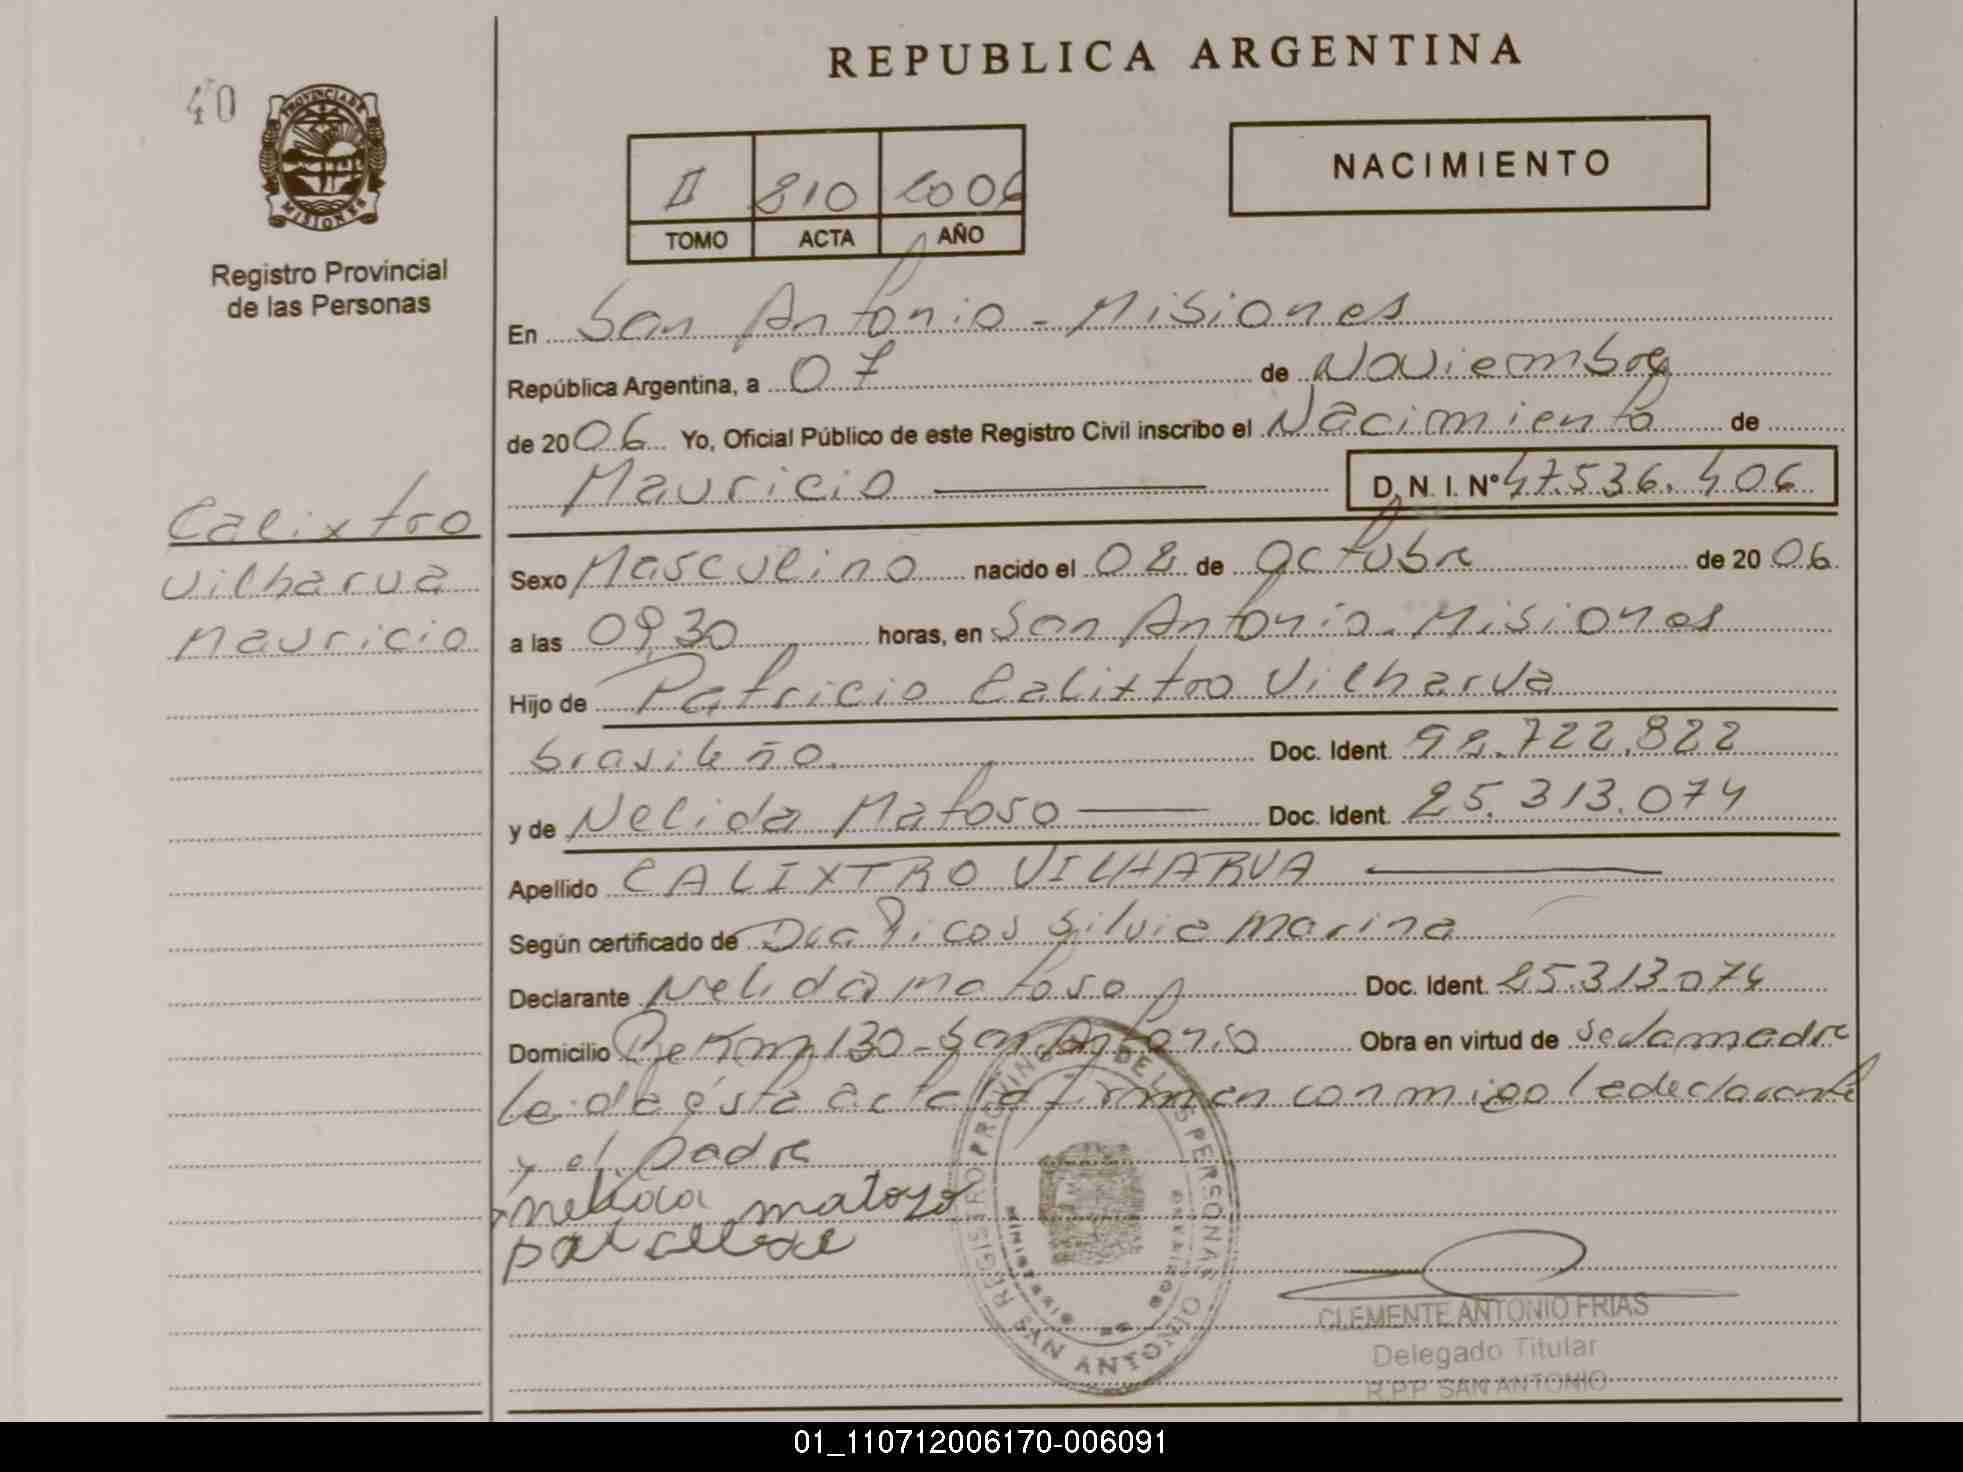 REPUBLICA ARGENTINA
40
PROVINCIA DE
MISIONES
Registro Provincial
de las Personas
II 210 2006
TOMO ACTA AÑO
NACIMIENTO
En San Antonio - Misiones
República Argentina, a 07 de Noviembre
de 2006 Yo, Oficial Público de este Registro Civil inscribo el Nacimiento de
Mauricio D. N. I. Nº 47.536.406
Calixtro
Vilharva
Mauricio
Sexo Masculino nacido el 02 de Octubre de 2006
a las 09,30 horas, en San Antonio - Misiones
Hijo de Patricio Calixtro Vilharva
brasileño. Doc. Ident. 92.722.822
y de Nelida Matoso Doc. Ident. 25.313.074
Apellido CALIXTRO VILHARVA
Según certificado de Dra Picos Silvia Marina
Declarante Nelida Matoso Doc. Ident. 25.313.074
Domicilio Pje Km 130 - San Antonio Obra en virtud de ser la madre
Leida ésta acta la firman conmigo la declarante
y el padre
nelida matoso
CLEMENTE ANTONIO FRIAS
Delegado Titular
R.P.P. SAN ANTONIO
REGISTRO PROVINCIAL DE LAS PERSONAS
MINISTERIO DE GOBIERNO
SAN ANTONIO
01_110712006170-006091